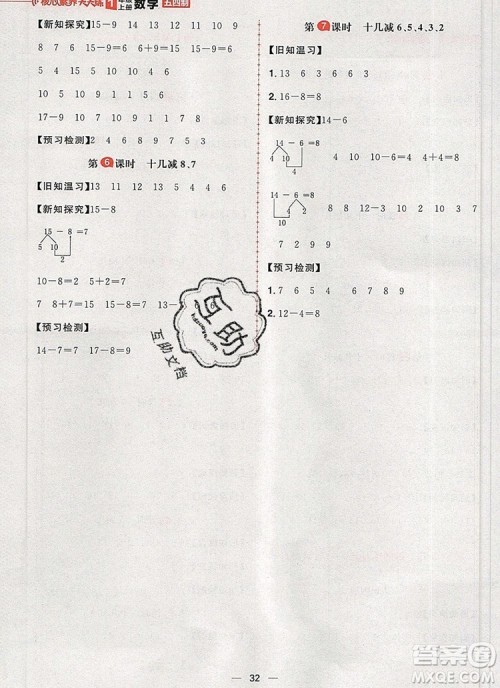 核心素养天天练 1年级上册 数学 五四制
【新知探究】15－9 14 11 13 10 9
8 15 5 10 10 5 5 1 6
15 16 17 18 9 1 10
17－9＝8 16－9＝7 8
【预习检测】2 4 6 8 9 7 5 3
第6课时 十几减8、7
【旧知温习】13 11 12 5 4 6
【新知探究】15－8
15－8＝7
5 10
2
10－8＝2 2＋5＝7
7 8＋7＝15 15－8＝7 7
【预习检测】
14－7＝7 17－8＝9
第7课时 十几减6、5、4、3、2
【旧知温习】
1. 13 6 3 3 8 7
2. 16－8＝8
【新知探究】14－6
14－6＝8
4 10
4 2
14－6＝8
10 4
4
7 8 8 4 10 10 2 8
7 2 9 9
【预习检测】
1. 7 5 6 4 7 8 9
2. 12－4＝8
互助
互助文档
32
作业帮